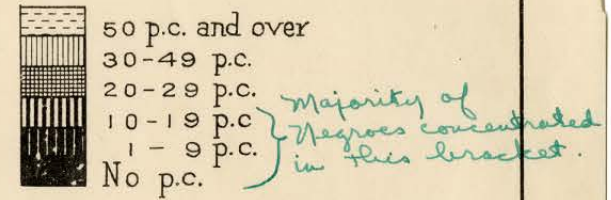 50 p.c. and over
30-49 p.c.
20-29 p.c.
10-19 p.c
1 - 9 p.c.
No p.c.
Majority of
Negroes concentrated
in this bracket.